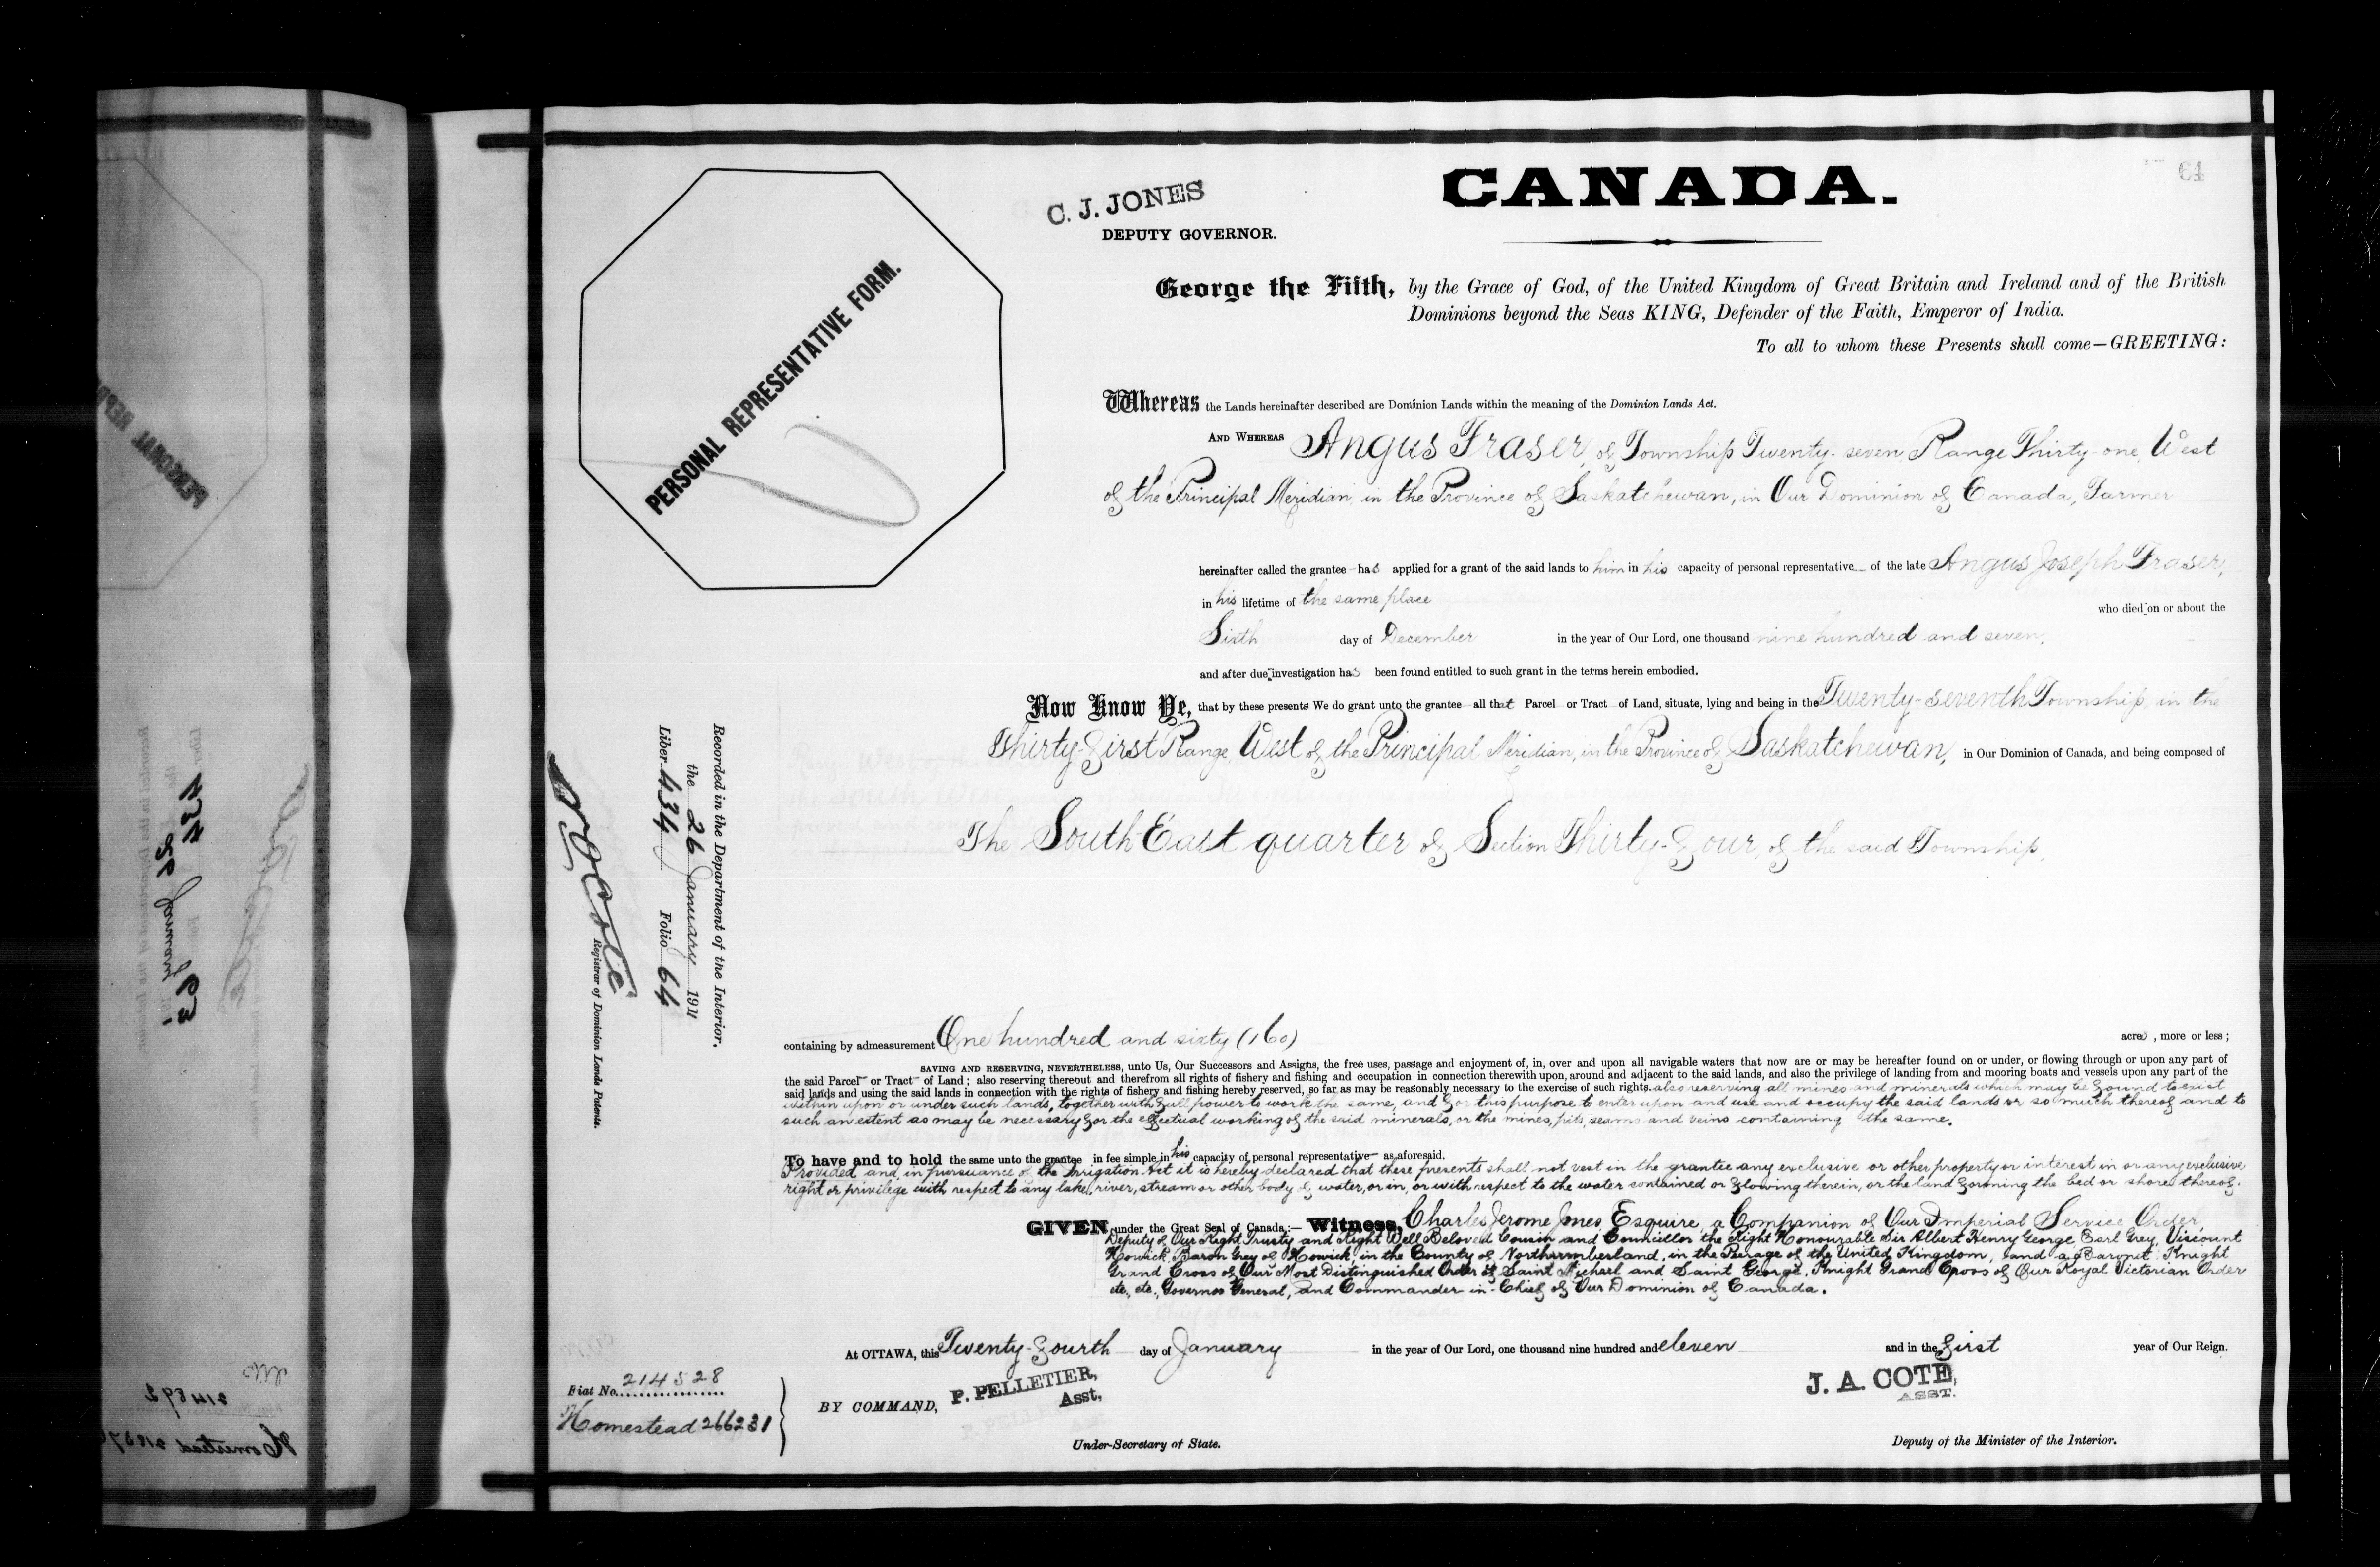 C. J. JONES
DEPUTY GOVERNOR.
CANADA.
64
PERSONAL REPRESENTATIVE FORM.
George the Fifth, by the Grace of God, of the United Kingdom of Great Britain and Ireland and of the British
Dominions beyond the Seas KING, Defender of the Faith, Emperor of India.
To all to whom these Presents shall come—GREETING:
Whereas the Lands hereinafter described are Dominion Lands within the meaning of the Dominion Lands Act.
AND WHEREAS Angus Fraser, of Township Twenty-seven, Range Thirty-one, West
of the Principal Meridian, in the Province of Saskatchewan, in Our Dominion of Canada, Farmer
hereinafter called the grantee has applied for a grant of the said lands to him in his capacity of personal representative of the late Angus Joseph Fraser,
in his lifetime of the same place
who died on or about the
Sixth day of December in the year of Our Lord, one thousand nine hundred and seven,
and after due investigation has been found entitled to such grant in the terms herein embodied.
Now Know Ye, that by these presents We do grant unto the grantee all that Parcel or Tract of Land, situate, lying and being in the Twenty-seventh Township, in the
Thirty-first Range, West of the Principal Meridian, in the Province of Saskatchewan, in Our Dominion of Canada, and being composed of
The South East quarter of Section Thirty-four, of the said Township,
containing by admeasurement One hundred and sixty (160) acres, more or less;
SAVING AND RESERVING, NEVERTHELESS, unto Us, Our Successors and Assigns, the free uses, passage and enjoyment of, in, over and upon all navigable waters that now are or may be hereafter found on or under, or flowing through or upon any part of
the said Parcel or Tract of Land; also reserving thereout and therefrom all rights of fishery and fishing and occupation in connection therewith upon, around and adjacent to the said lands, and also the privilege of landing from and mooring boats and vessels upon any part of the
said lands and using the said lands in connection with the rights of fishery and fishing hereby reserved, so far as may be reasonably necessary to the exercise of such rights. also reserving all mines and minerals which may be found to exist
within upon or under such lands, together with full power to work the same, and for this purpose to enter upon and use and occupy the said lands or so much thereof and to
such an extent as may be necessary for the effectual working of the said minerals, or the mines, pits, seams and veins containing the same.
To have and to hold the same unto the grantee in fee simple in his capacity of personal representative as aforesaid.
Provided and in pursuance of the Irrigation Act it is hereby declared that these presents shall not vest in the grantee any exclusive or other property or interest in or any exclusive
right or privilege with respect to any lake, river, stream or other body of water, or in, or with respect to the water contained or flowing therein, or the land forming the bed or shore thereof.
GIVEN under the Great Seal of Canada:— Witness, Charles Jerome Jones, Esquire, a Companion of Our Imperial Service Order,
Deputy of Our Right Trusty and Right Well Beloved Cousin and Councillor the Right Honourable Sir Albert Henry George, Earl Grey, Viscount
Howick, Baron Grey of Howick, in the County of Northumberland, in the Peerage of the United Kingdom, and a Baronet; Knight
Grand Cross of Our Most Distinguished Order of Saint Michael and Saint George, Knight Grand Cross of Our Royal Victorian Order
etc., etc., Governor General, and Commander-in-Chief of Our Dominion of Canada.
At OTTAWA, this Twenty-fourth day of January in the year of Our Lord, one thousand nine hundred and eleven and in the first year of Our Reign.
BY COMMAND, P. PELLETIER,
Asst.
Under-Secretary of State.
J. A. COTE,
ASST.
Deputy of the Minister of the Interior.
Fiat No. 214528
Homestead 266231
Recorded in the Department of the Interior.
the 26 January 1911
Liber 434 Folio 64
Registrar of Dominion Lands Patents.